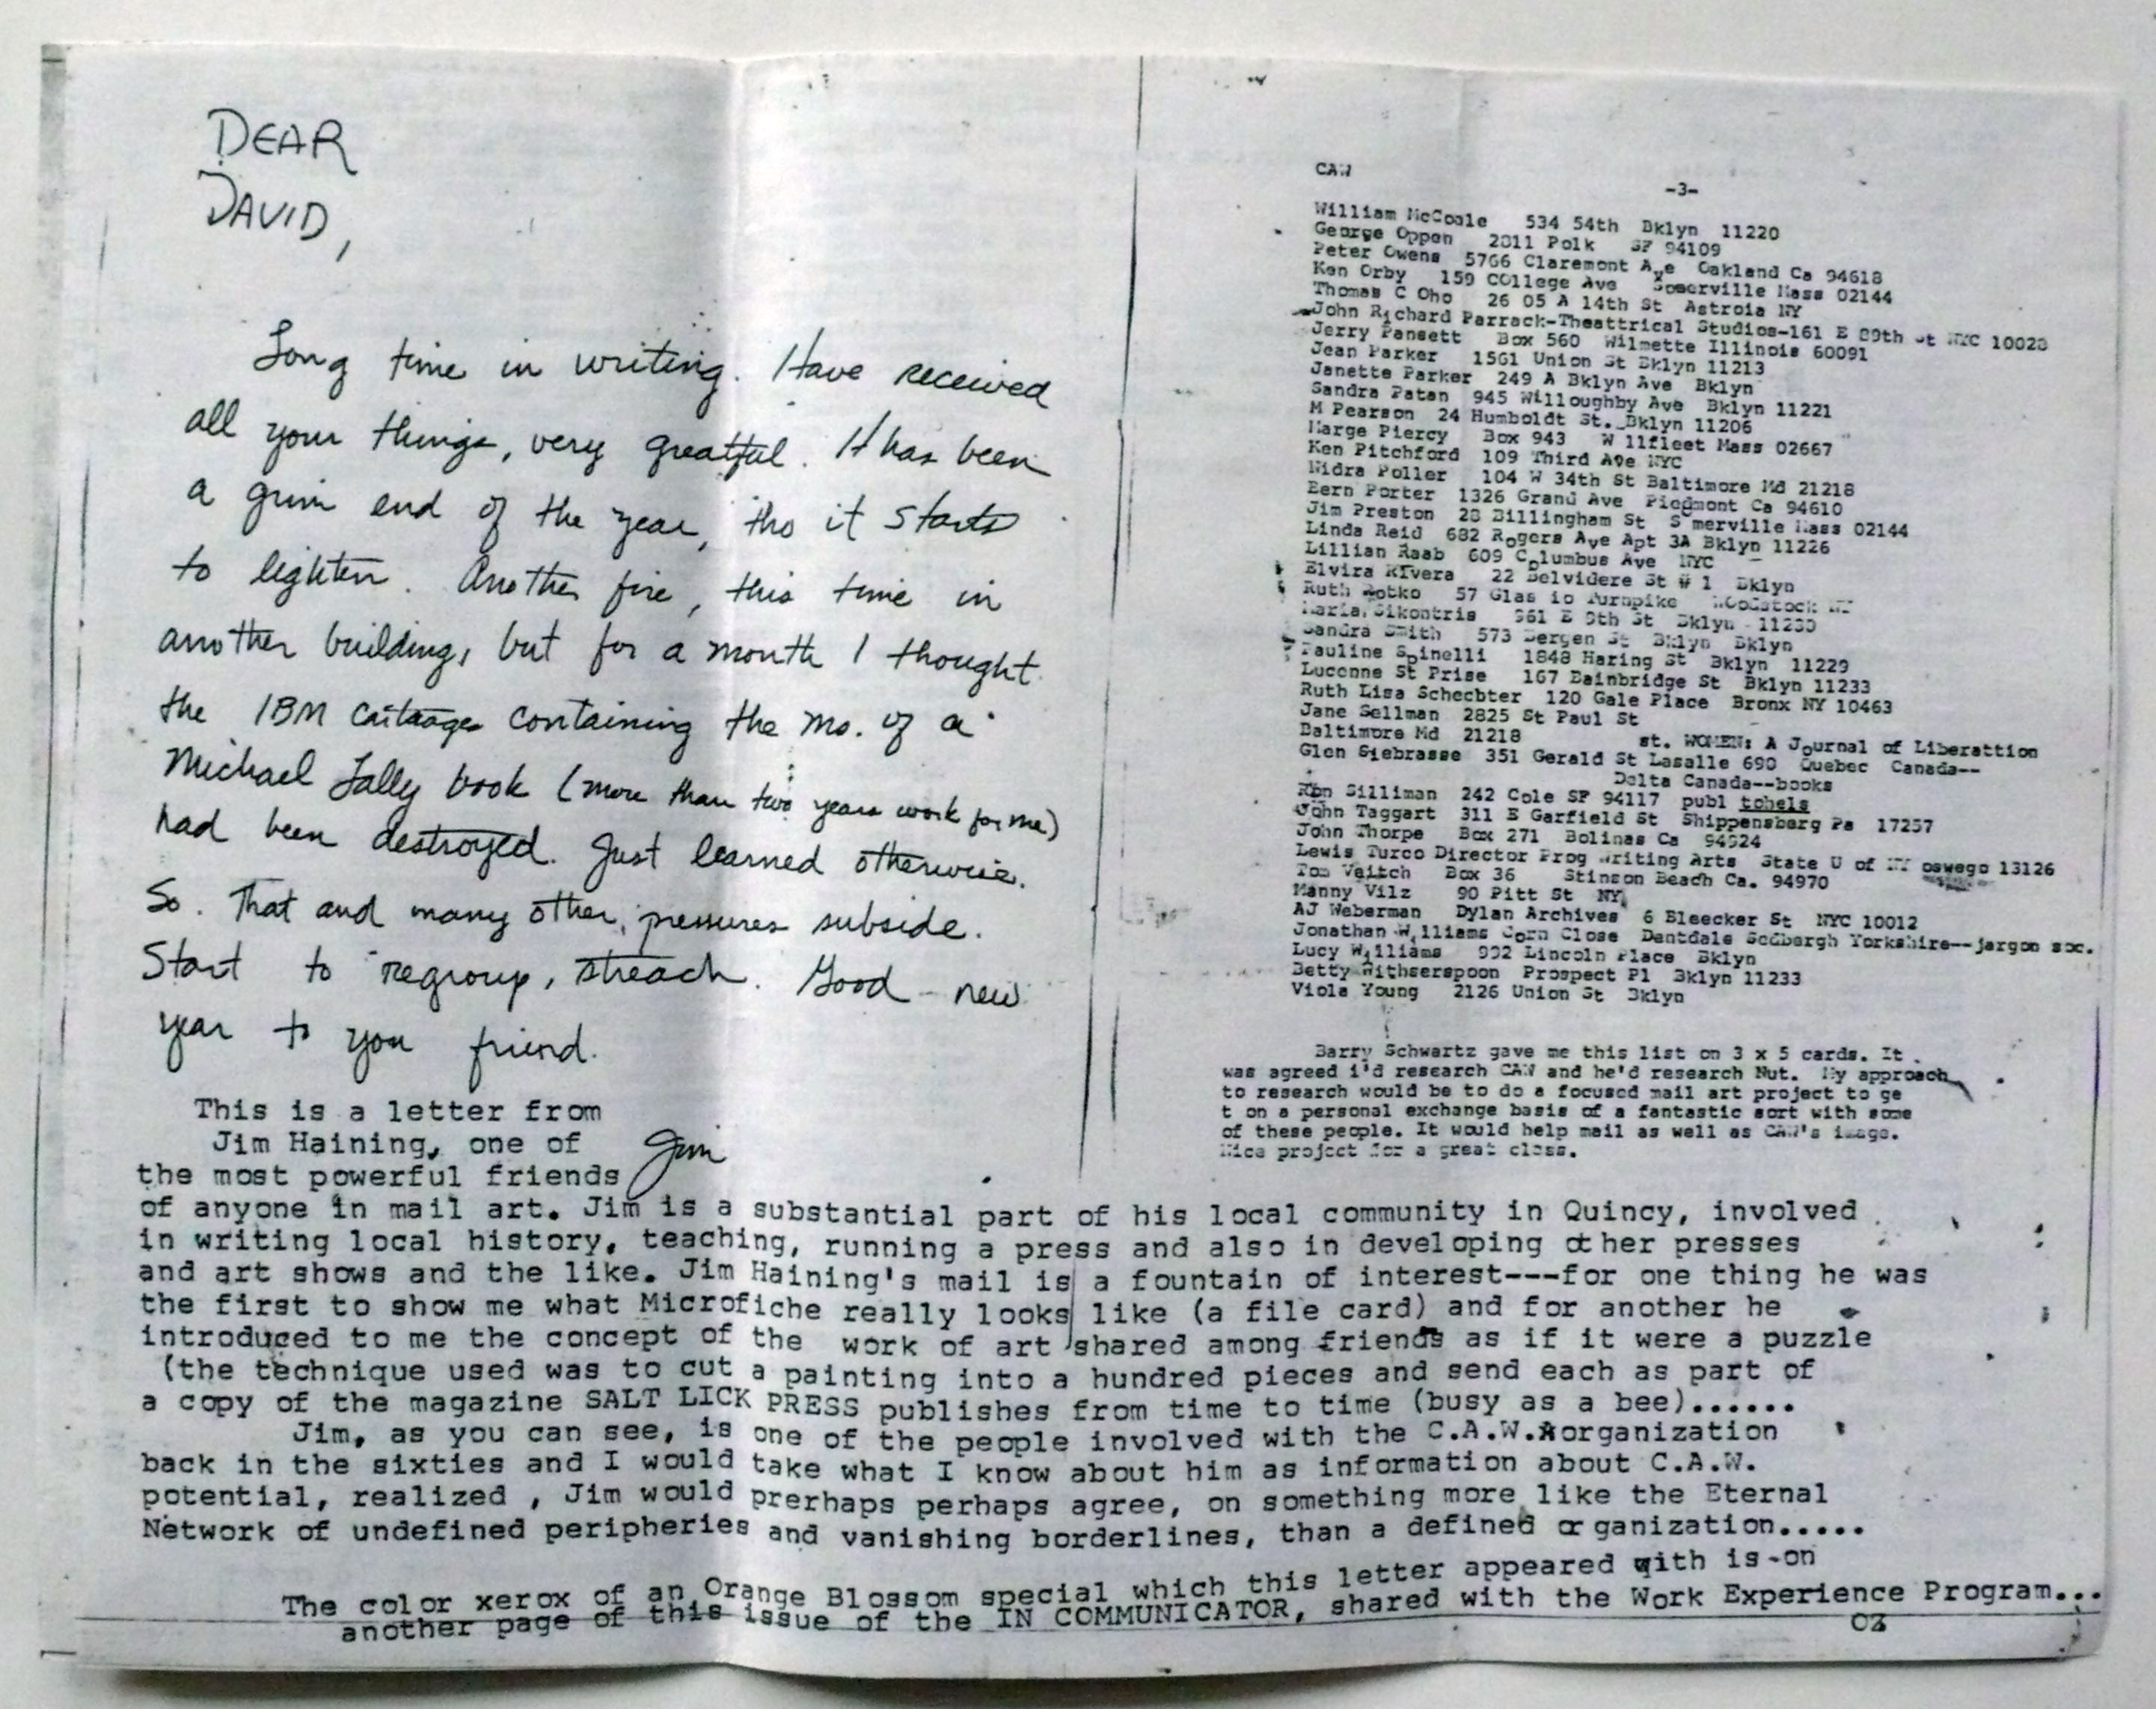 DEAR
DAVID,
Long time in writing. Have received
all your things, very greatful. It has been
a grim end of the year, tho it starts
to lighten. Another fire, this time in
another building, but for a month I thought
the IBM containing the ms. of a
Michael Lally book (more than two years work for me)
had been destroyed. Just learned otherwise.
So. That and many other pressures subside.
Start to regroup, streach. Good new
year to you friend.
Jim
CAW
-3-
William McCoale 534 54th Bklyn 11220
George Oppen 2811 Polk SF 94109
Peter Owens 5766 Claremont Ave Oakland Ca 94618
Ken Orby 159 COllege Ave Somerville Mass 02144
Thomas C Oho 26 05 A 14th St Astroia NY
John Richard Parrack-Theattrical Studios-161 E 89th st NYC 10028
Jerry Pansett Box 560 Wilmette Illinois 60091
Jean Parker 1561 Union St Bklyn 11213
Janette Parker 249 A Bklyn Ave Bklyn
Sandra Patan 945 Willoughby Ave Bklyn 11221
M Pearson 24 Humboldt St. Bklyn 11206
Marge Piercy Box 943 W llfleet Mass 02667
Ken Pitchford 109 Third A0e NYC
Nidra Poller 104 W 34th St Baltimore Md 21218
Bern Porter 1326 Grand Ave Piedmont Ca 94610
Jim Preston 28 Billingham St S merville Mass 02144
Linda Reid 682 Rogers Ave Apt 3A Bklyn 11226
Lillian Raab 609 Columbus Ave NYC
Elvira RIvera 22 Belvidere St # 1 Bklyn
Ruth 57 Glas io Turnpike Woodstock NY
Maria Sikontris 961 E 9th St Bklyn 11230
Sandra Smith 573 Bergen St Bklyn Bklyn
Pauline Spinelli 1848 Haring St Bklyn 11229
Luconne St Prise 167 Bainbridge St Bklyn 11233
Ruth Lisa Schecbter 120 Gale Place Bronx NY 10463
Jane Sellman 2825 St Paul St
Baltimore Md 21218 st. WOMEN: A Journal of Liberattion
Glen Siebrasse 351 Gerald St Lasalle 690 Quebec Canada--
Delta Canada--books
Ron Silliman 242 Cole SF 94117 publ tohels
John Taggart 311 E Garfield St Shippensberg Pa 17257
John Thorpe Box 271 Bolinas Ca 94924
Lewis Turco Director Prog Writing Arts State U of NY oswego 13126
Tom Veitch Box 36 Stinson Beach Ca. 94970
Manny Vilz 90 Pitt St NY
AJ Weberman Dylan Archives 6 Bleecker St NYC 10012
Jonathan Williams Corn Close Dentdale Sedbergh Yorkshire--jargon soc.
Lucy Williams 992 Lincoln Place Bklyn
Betty Withserspoon Prospect Pl Bklyn 11233
Viola Young 2126 Union St Bklyn
Barry Schwartz gave me this list on 3 x 5 cards. It
was agreed i'd research CAW and he'd research Nut. My approach
to research would be to do a focused mail art project to ge
t on a personal exchange basis of a fantastic sort with some
of these people. It would help mail as well as CAW's image.
Nice project for a great class.
This is a letter from
Jim Haining, one of
the most powerful friends
of anyone in mail art. Jim is a substantial part of his local community in Quincy, involved
in writing local history, teaching, running a press and also in developing other presses
and art shows and the like. Jim Haining's mail is a fountain of interest---for one thing he was
the first to show me what Microfiche really looks like (a file card) and for another he
introduced to me the concept of the work of art shared among friends as if it were a puzzle
(the technique used was to cut a painting into a hundred pieces and send each as part of
a copy of the magazine SALT LICK PRESS publishes from time to time (busy as a bee)......
Jim, as you can see, is one of the people involved with the C.A.W. organization
back in the sixties and I would take what I know about him as information about C.A.W.
potential, realized , Jim would prerhaps perhaps agree, on something more like the Eternal
Network of undefined peripheries and vanishing borderlines, than a defined organization.....
The color xerox of an Orange Blossom special which this letter appeared with is-on
another page of this issue of the IN COMMUNICATOR, shared with the Work Experience Program...
03